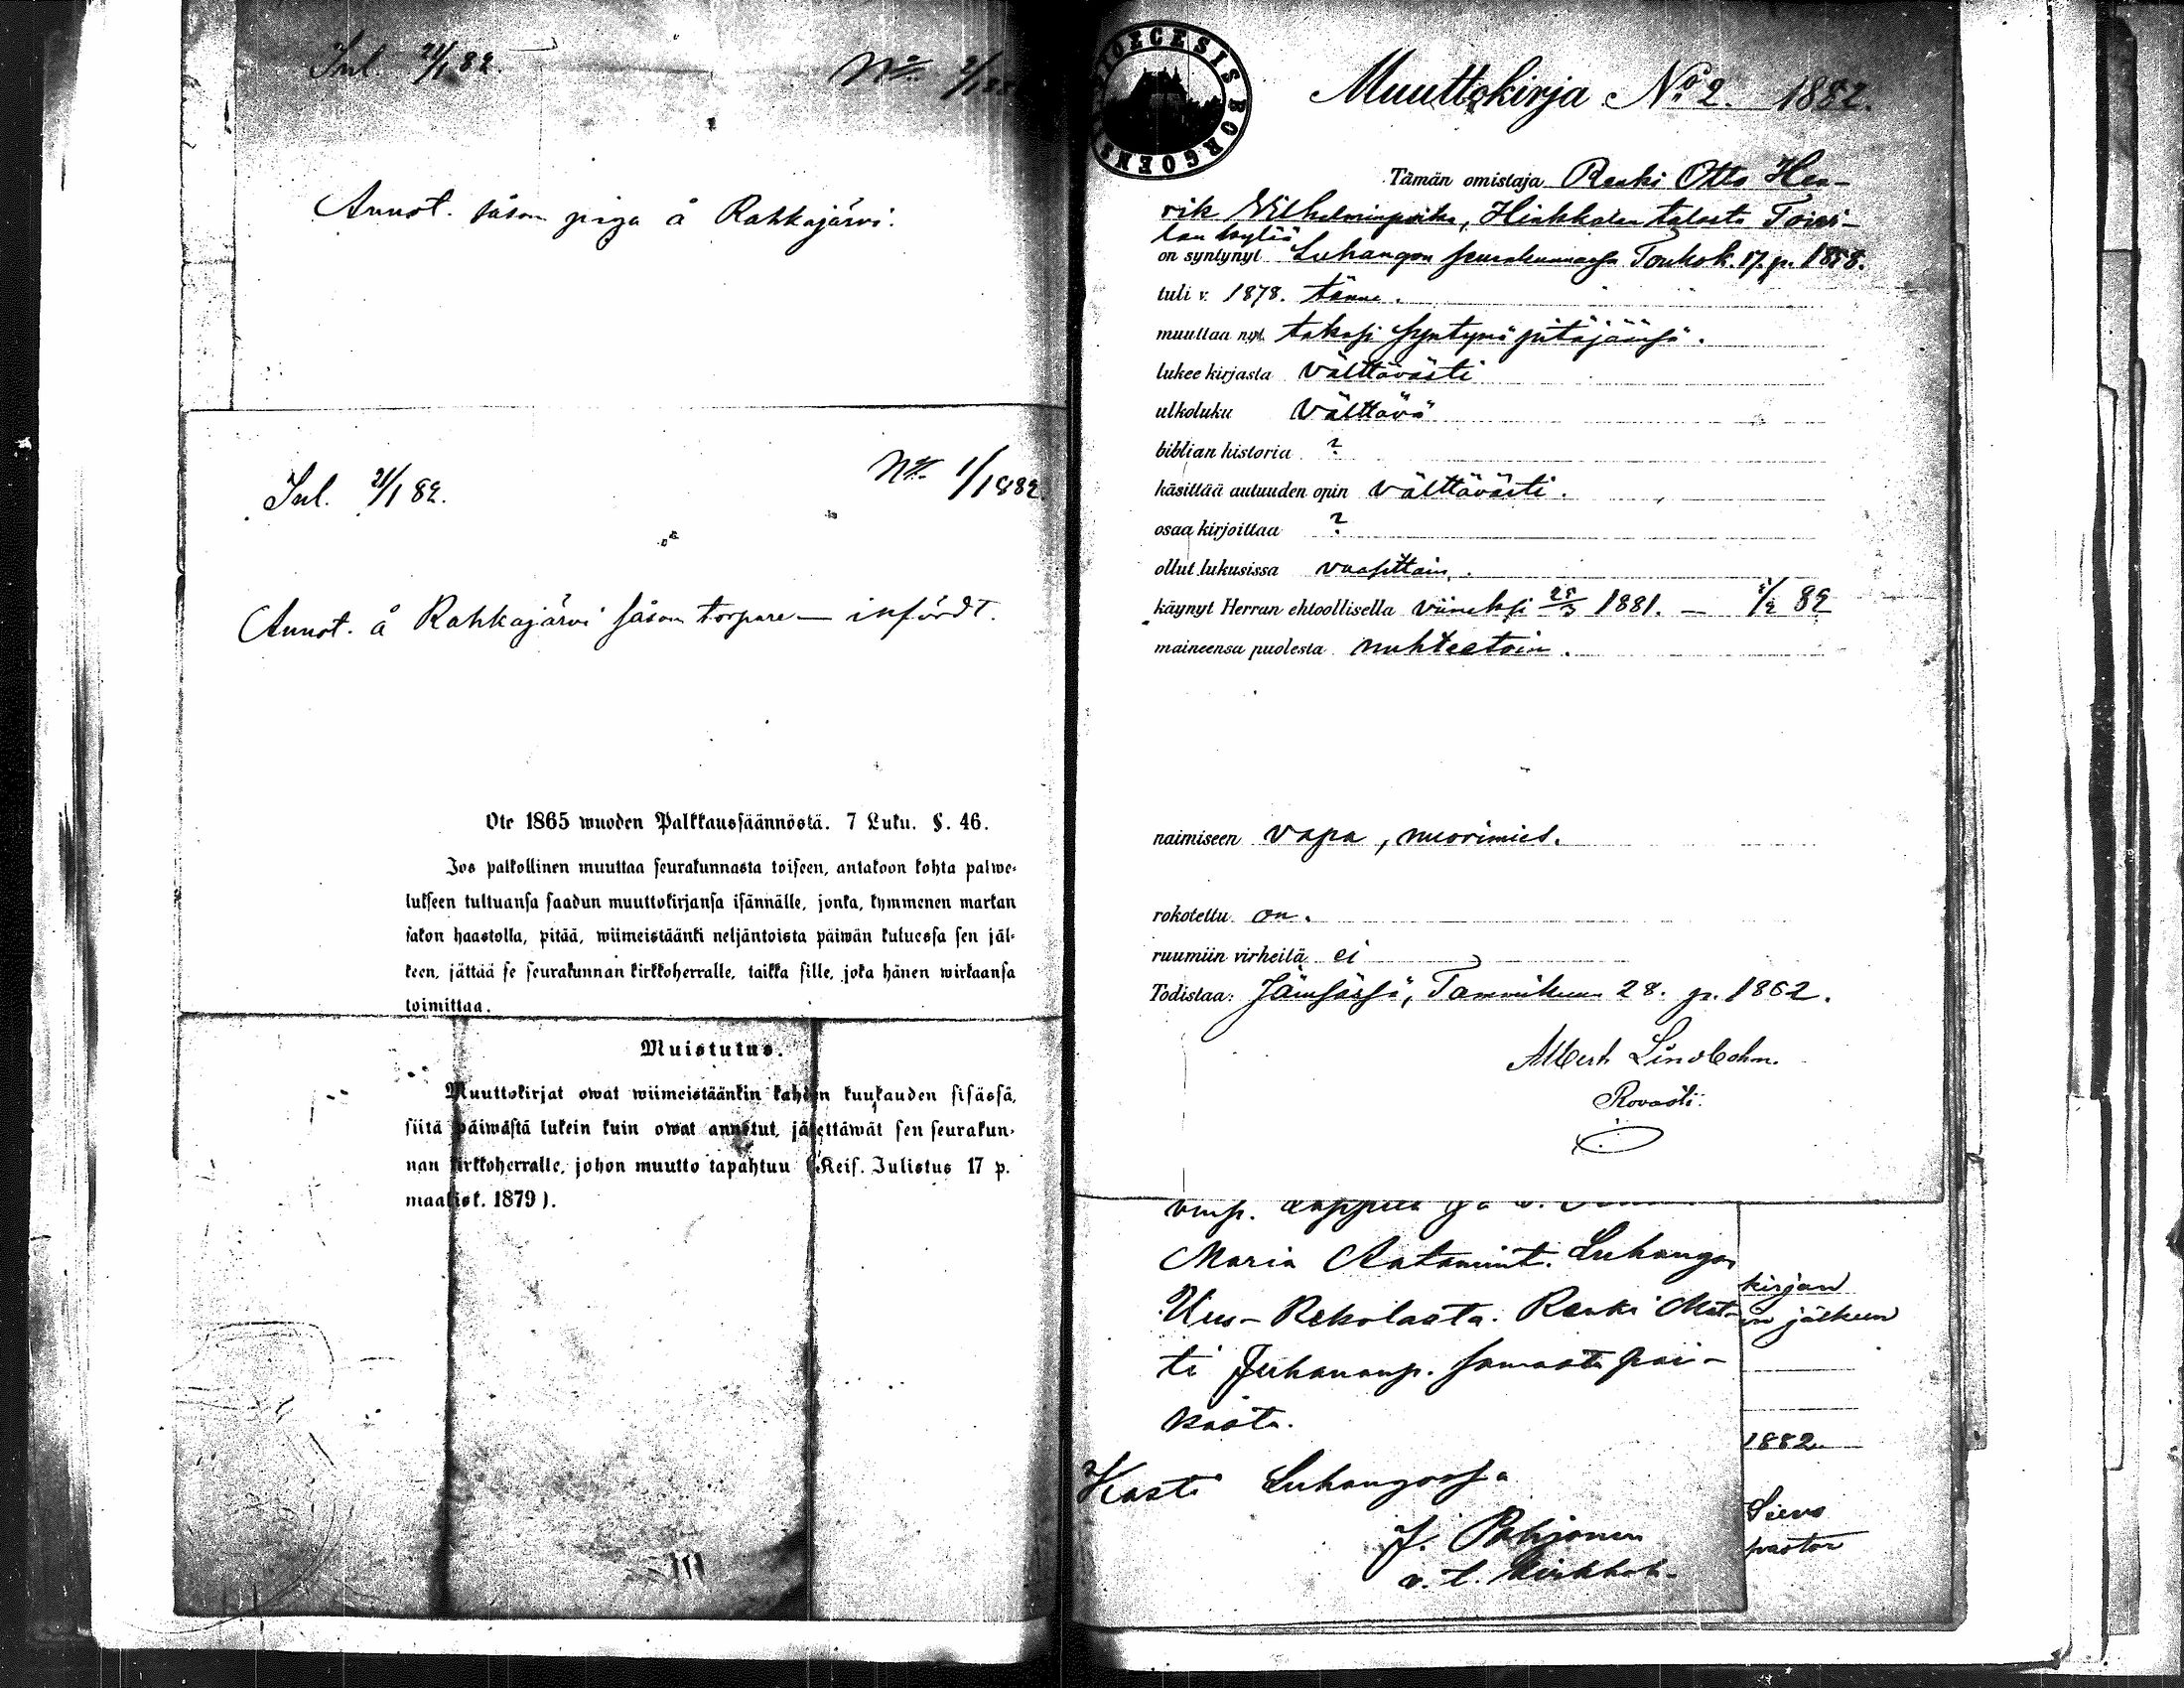 Inl. 21/1 82.
No 2/1882
Annot. såsom piga å Rahkajärvi.
Inl. 21/1 82.
No 1/1882.
Annot. å Rahkajärvi såsom torpare — infördt.
Ote 1865 wuoden Palkkaussäännöstä. 7 Luku. §. 46.
Jos palkollinen muuttaa seurakunnasta toiseen, antakoon kohta palwe-
lukseen tultuansa saadun muuttokirjansa isännälle, jonka, kymmenen markan
sakon haastolla, pitää, wiimeistäänki neljäntoista päiwän kuluessa sen jäl-
keen, jättää se seurakunnan kirkkoherralle, taikka sille, joka hänen wirkaansa
toimittaa.
Muistutus.
Muuttokirjat owat wiimeistäänkin kahden kuukauden sisässä,
siitä päiwästä lukein kuin owat annetut, jätettäwät sen seurakun-
nan kirkkoherralle, johon muutto tapahtuu (Keis. Julistus 17 p.
maalisk. 1879).
DIOECESIS BORGOENSIS
Muuttokirja No 2. 1882.
Tämän omistaja Renki Otto Hen-
rik Vilhelminpoika, talosta Toivi-
lan kylää
on syntynyt Luhangon seurakunnassa Toukok. 17. p. 1858.
tuli v. 1878. tänne.
muuttaa nyt takasi syntymä pitäjäänsä.
lukee kirjasta välttävästi
ulkoluku välttävä
biblian historia ?
käsittää autuuden opin välttävästi.
osaa kirjoittaa ?
ollut lukusissa vuosittain.
käynyt Herran ehtoollisella viimeksi 25/3 1881. — 82
maineensa puolesta nuhteetoin.
naimiseen vapa, nuorimies.
rokotettu on.
ruumiin virheitä ei
Todistaa: Jämsässä, Tammikuun 28. p. 1882.
Albert Lindbohm.
Rovasti.
Maria Aatamint. Luhangon
Uus-Rekolasta. Renki Mat-
ti Juhananp. samasta pai-
kasta.
Kasti Luhangossa
J. Pohjonen
v. t. kirkkoh.
kirjan
jälkeen
1882
pastor